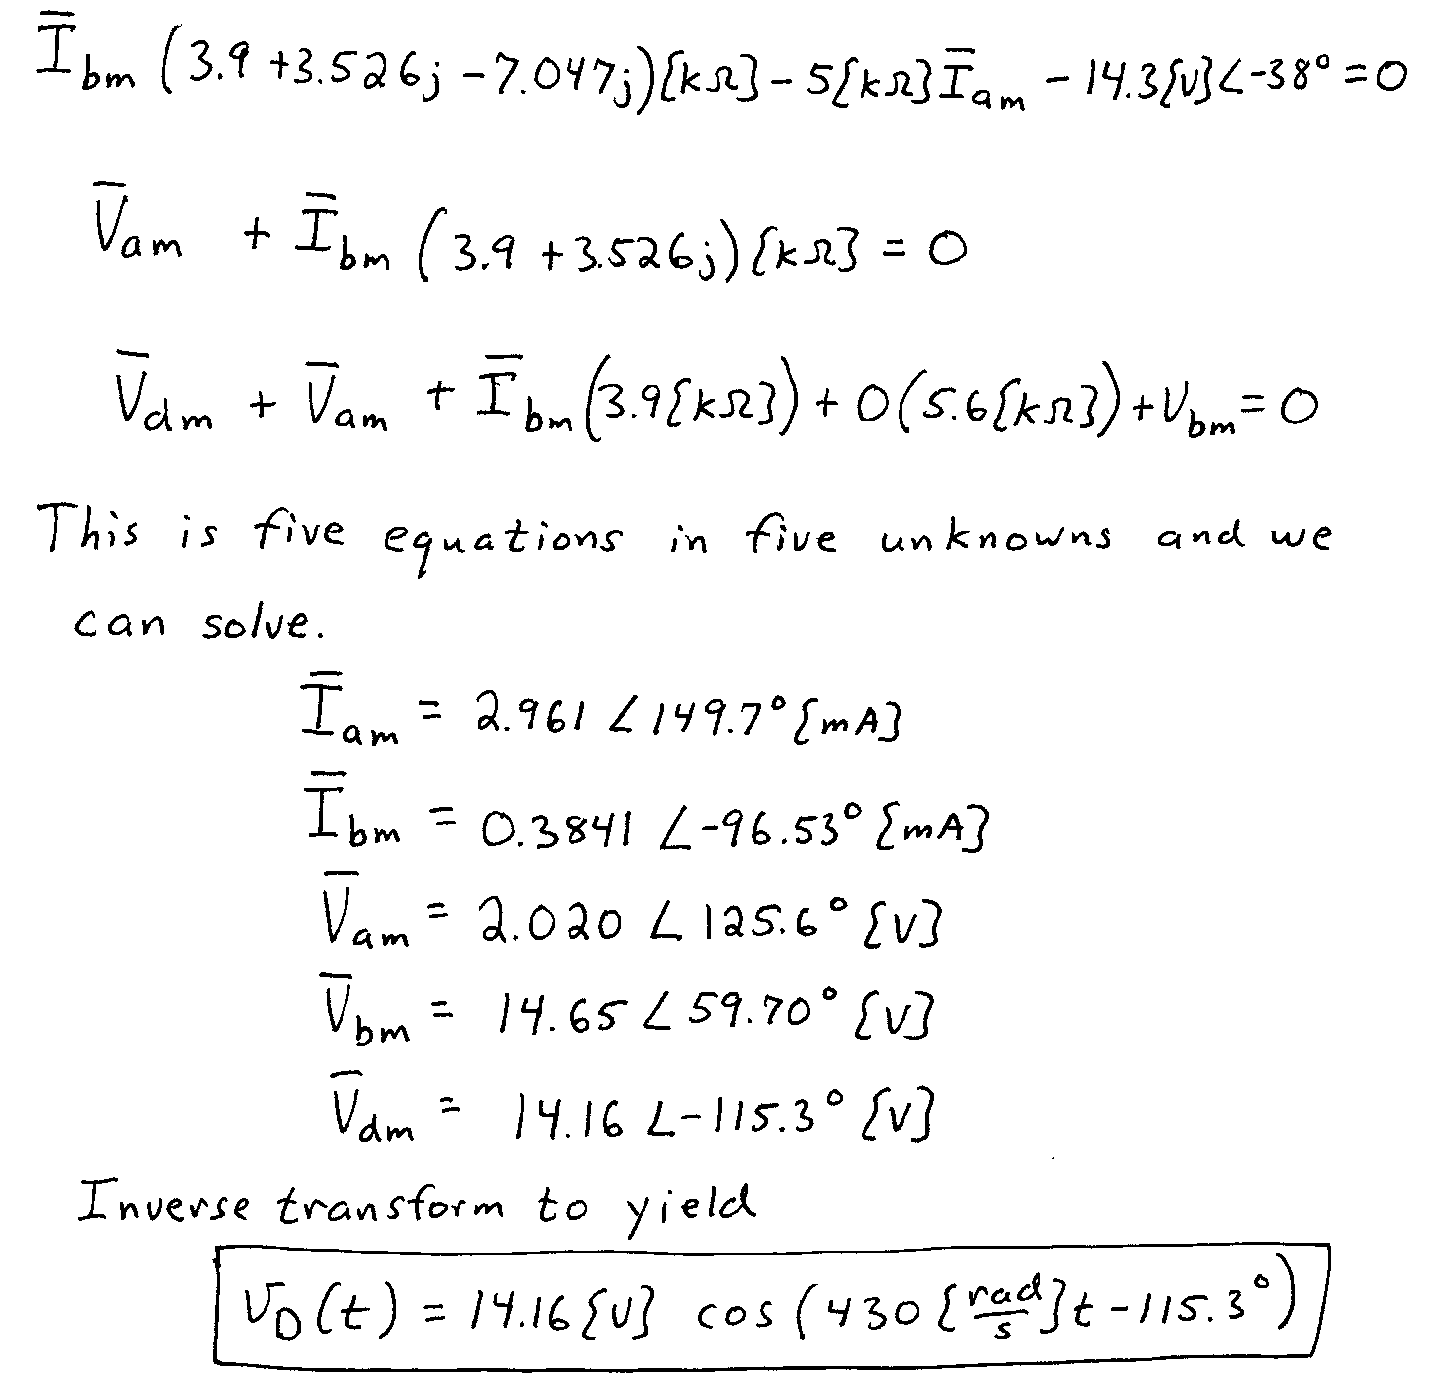 Ī̄bm (3.9 +3.526j -7.047j)[kΩ] - 5[kΩ]Īam - 14.3[V]∠-38° = 0
V̄am + Ībm (3.9 +3.526j)[kΩ] = 0
V̄dm + V̄am + Ībm(3.9[kΩ]) + 0(5.6[kΩ]) + Vbm = 0
This is five equations in five unknowns and we
can solve.
Īam = 2.961 ∠149.7° [mA]
Ībm = 0.3841 ∠-96.53° [mA]
V̄am = 2.020 ∠125.6° [V]
V̄bm = 14.65 ∠59.70° [V]
V̄dm = 14.16 ∠-115.3° [V]
Inverse transform to yield
vD(t) = 14.16[V] cos(430[rad/s]t - 115.3°)